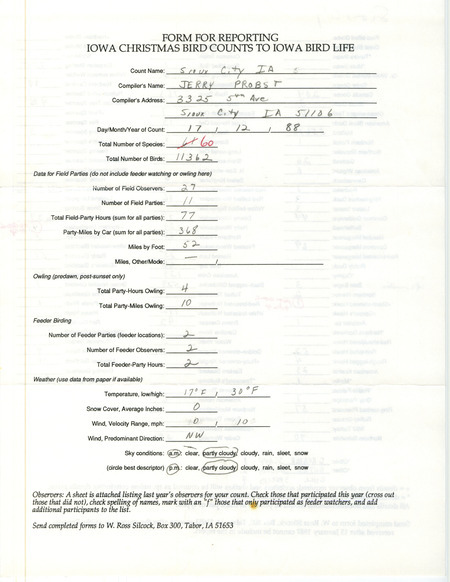 FORM FOR REPORTING
IOWA CHRISTMAS BIRD COUNTS TO IOWA BIRD LIFE
Count Name: Sioux City IA
Compiler's Name: JERRY PROBST
Compiler's Address: 3325 5th Ave
Sioux City IA 51106
Day/Month/Year of Count: 17 , 12 , 88
Total Number of Species: 60
Total Number of Birds: 11362
Data for Field Parties (do not include feeder watching or owling here)
Number of Field Observers: 27
Number of Field Parties: 11
Total Field-Party Hours (sum for all parties): 77
Party-Miles by Car (sum for all parties): 368
Miles by Foot: 52
Miles, Other/Mode: — ,
Owling (predawn, post-sunset only)
Total Party-Hours Owling: 4
Total Party-Miles Owling: 10
Feeder Birding
Number of Feeder Parties (feeder locations): 2
Number of Feeder Observers: 2
Total Feeder-Party Hours: 2
Weather (use data from paper if available)
Temperature, low/high: 17°F , 30°F
Snow Cover, Average Inches: 0
Wind, Velocity Range, mph: 0 , 10
Wind, Predominant Direction: NW
Sky conditions: a.m.: clear, partly cloudy, cloudy, rain, sleet, snow
(circle best descriptor) p.m.: clear, partly cloudy, cloudy, rain, sleet, snow
Observers: A sheet is attached listing last year's observers for your count. Check those that participated this year (cross out
those that did not), check spelling of names, mark with an "f" those that only participated as feeder watchers, and add
additional participants to the list.
Send completed forms to W. Ross Silcock, Box 300, Tabor, IA 51653